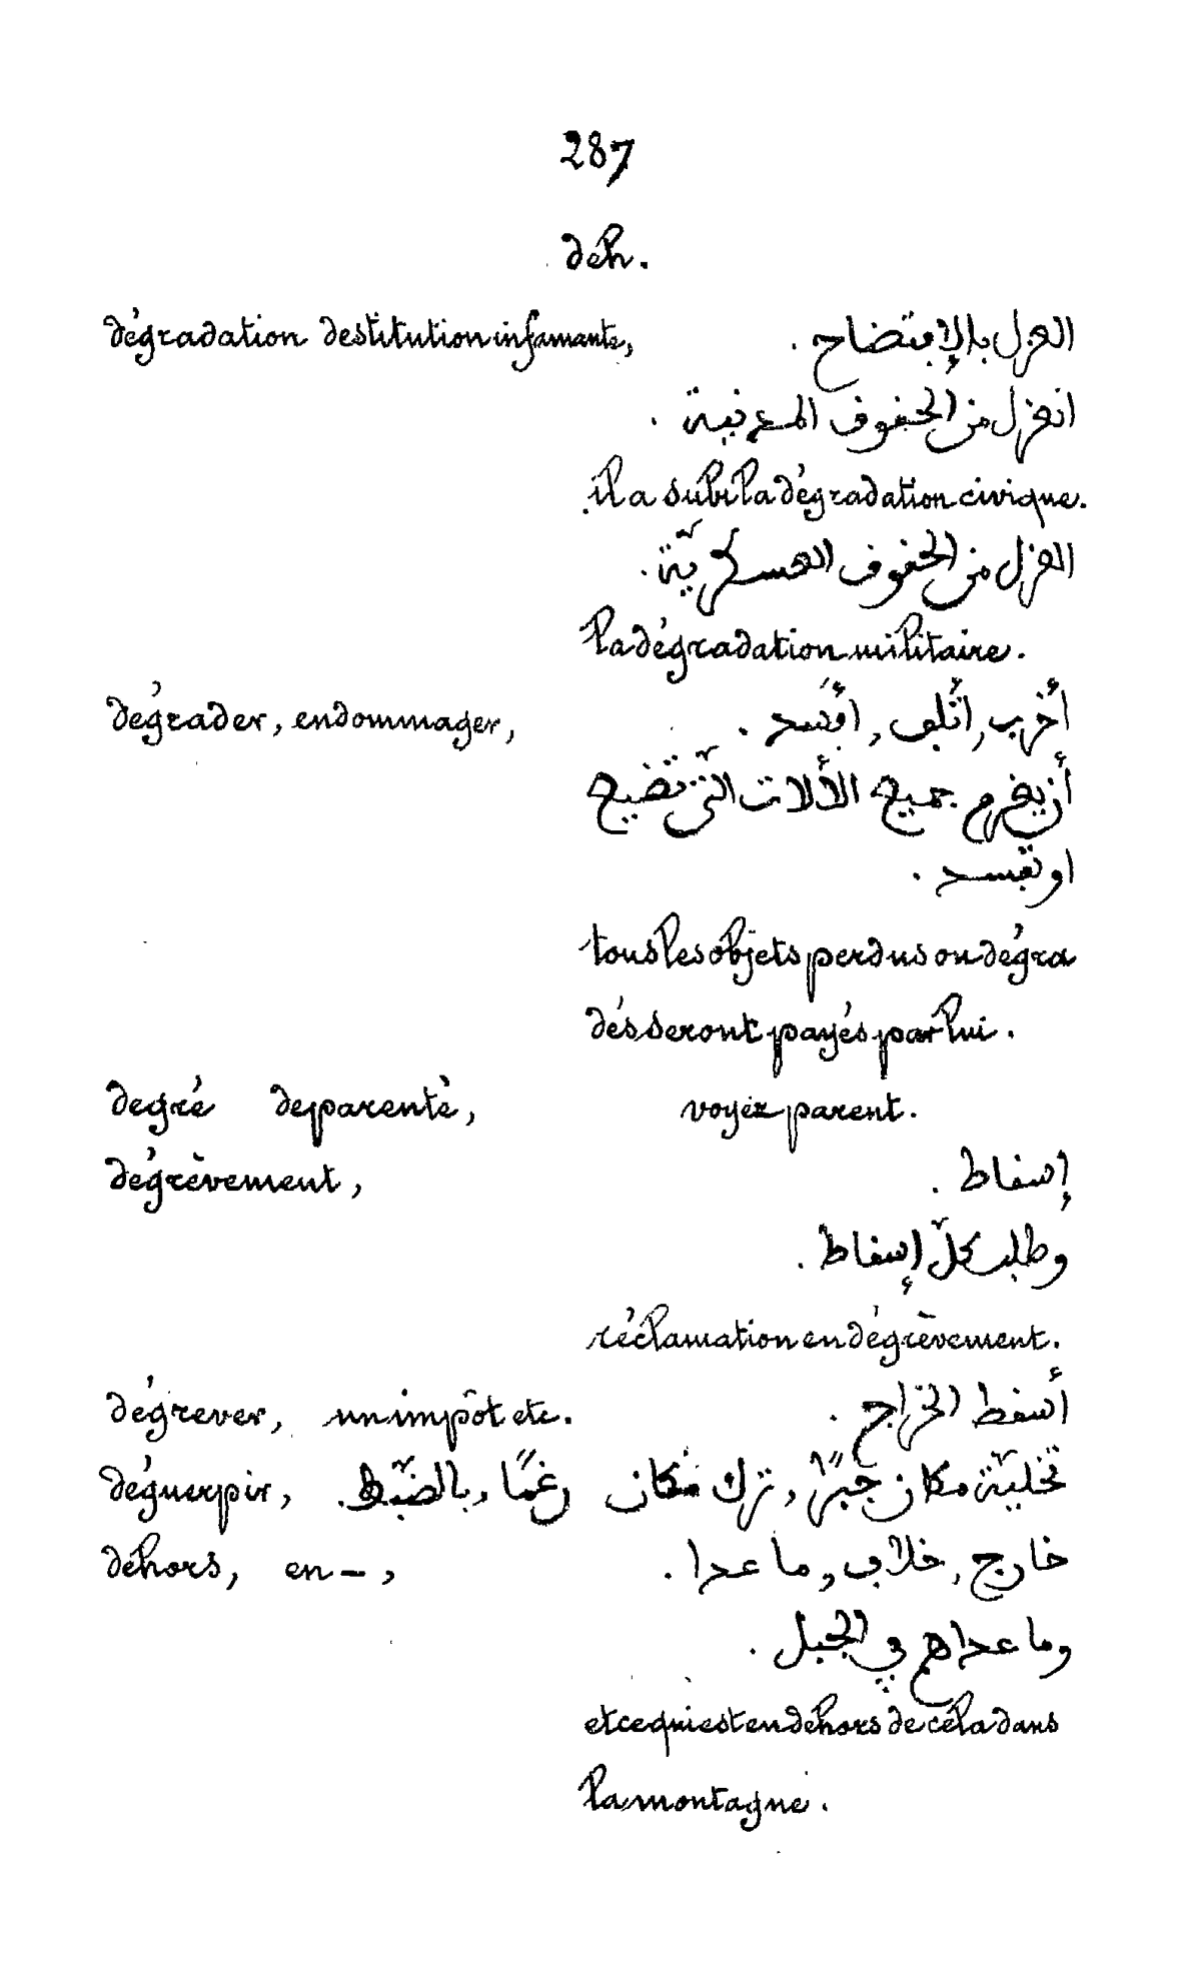 287
déh.
dégradation destitution infamante, العزل بالإفتضاح .
انعزل من الحقوق المدنية .
il a subi la dégradation civique.
العزل من الحقوق العسكريّة .
la dégradation militaire.
dégrader, endommager, أخرب, أتلف, أفسد .
أن يغرم جميع الألات الّتي تضيع
او تفسد .
tous les objets perdus ou dégra
dés seront payés par lui.
degré de parenté, voyez parent.
dégrèvement, إسقاط .
وطلب كلّ إسقاط .
réclamation en dégrèvement.
dégrever, un impôt etc. أسقط الخراج .
déguerpir, تخليّة مكان جبرًا, ترك مكان رغمًا, بالضّبط .
dehors, en –, خارج, خلاف, ما عدا .
وما عداهم في الجبل .
et ce qui est en dehors de cela dans
la montagne.